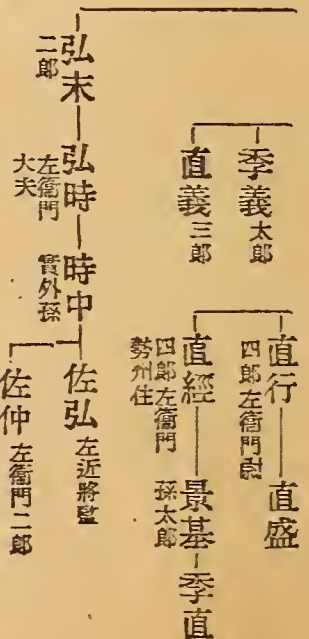 季義 太郎
直義 三郎
直行 四郎左衞門尉
直盛
直經 四郎左衞門
勢州住
景基 孫太郎
季直
弘末 二郎
弘時 左衞門
大夫
時中 實外孫
佐弘 左近將監
佐仲 左衞門二郎